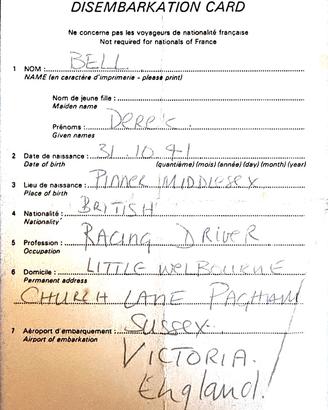 DISEMBARKATION CARD
Ne concerne pas les voyageurs de nationalité française
Not required for nationals of France
1 NOM : BELL
NAME (en caractère d'imprimerie - please print)
Nom de jeune fille :
Maiden name
Prénoms : DEREK.
Given names
2 Date de naissance : 31. 10. 41
Date of birth (quantième) (mois) (année) (day) (month) (year)
3 Lieu de naissance : PINNER MIDDLESEX
Place of birth
4 Nationalité : BRITISH
Nationality
5 Profession : RACING DRIVER
Occupation
6 Domicile : LITTLE WELBOURNE
Permanent address
CHURCH LANE PAGHAM
SUSSEX.
7 Aéroport d'embarquement :
Airport of embarkation
VICTORIA.
England!